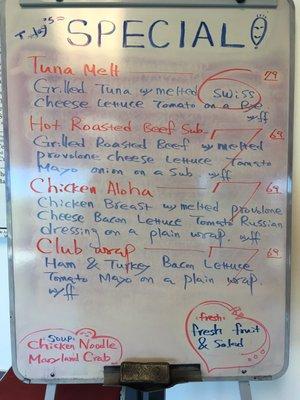 Today's = SPECIAL
Tuna Melt 79
Grilled Tuna w melted swiss
Cheese Lettuce Tomato on a Rye
w/ff
Hot Roasted Beef Sub 69
Grilled Roasted Beef w melted
provolone cheese Lettuce Tomato
Mayo onion on a Sub w/ff
Chicken Aloha 69
Chicken Breast w melted provolone
Cheese Bacon Lettuce Tomato Russian
dressing on a plain wrap. w/ff
Club wrap 69
Ham & Turkey Bacon Lettuce
Tomato Mayo on a plain wrap.
w/ff
SOUP:
Chicken Noodle
Maryland Crab
fresh:
fresh fruit
& Salad